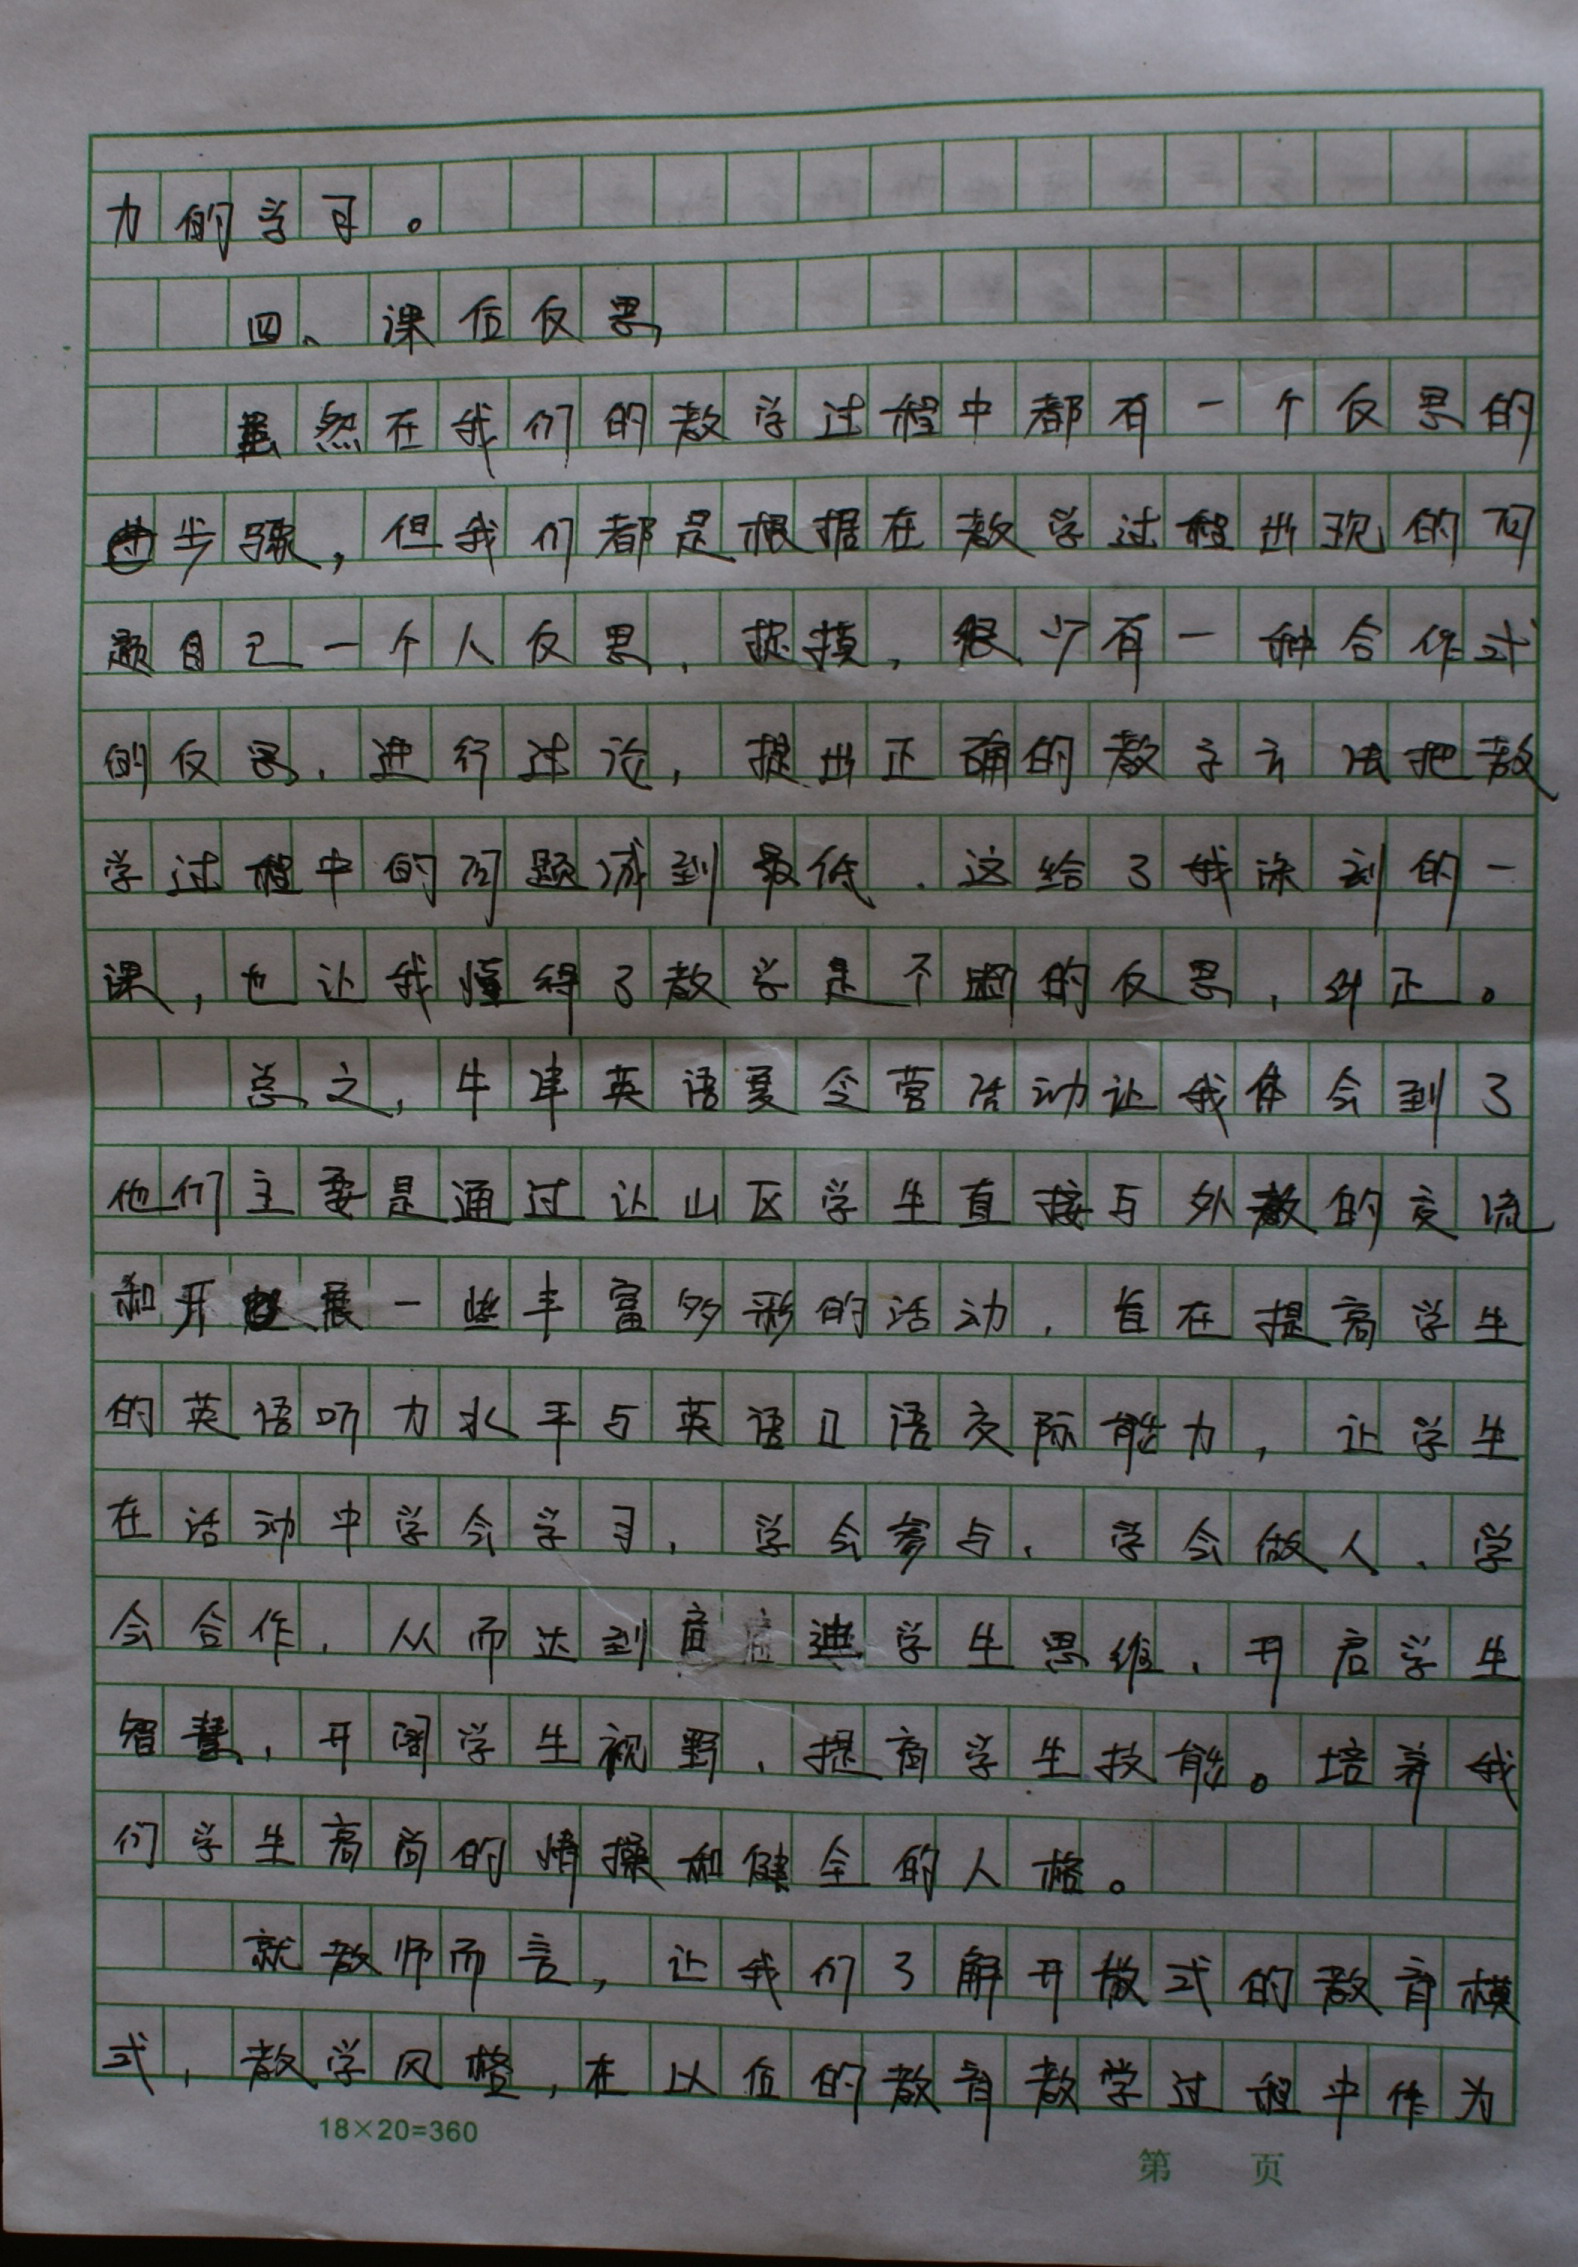 力的学习。
四、课后反思
虽然在我们的教学过程中都有一个反思的
步骤，但我们都是根据在教学过程出现的问
题自己一个人反思，捉摸，很少有一种合作式
的反思，进行讨论，提出正确的教学方法把教
学过程中的问题减到最低，这给了我深刻的一
课，也让我懂得了教学是不断的反思，纠正。
总之，牛津英语夏令营活动让我体会到了
他们主要是通过让山区学生直接与外教的交流
和开展一些丰富多彩的活动，旨在提高学生
的英语听力水平与英语口语交际能力，让学生
在活动中学会学习，学会参与，学会做人，学
会合作，从而达到进学生思维，开启学生
智慧，开阔学生视野，提高学生技能。培养我
们学生高尚的情操和健全的人格。
就教师而言，让我们了解开放式的教育模
式，教学风格，在以后的教育教学过程中作为
18×20=360
第 页